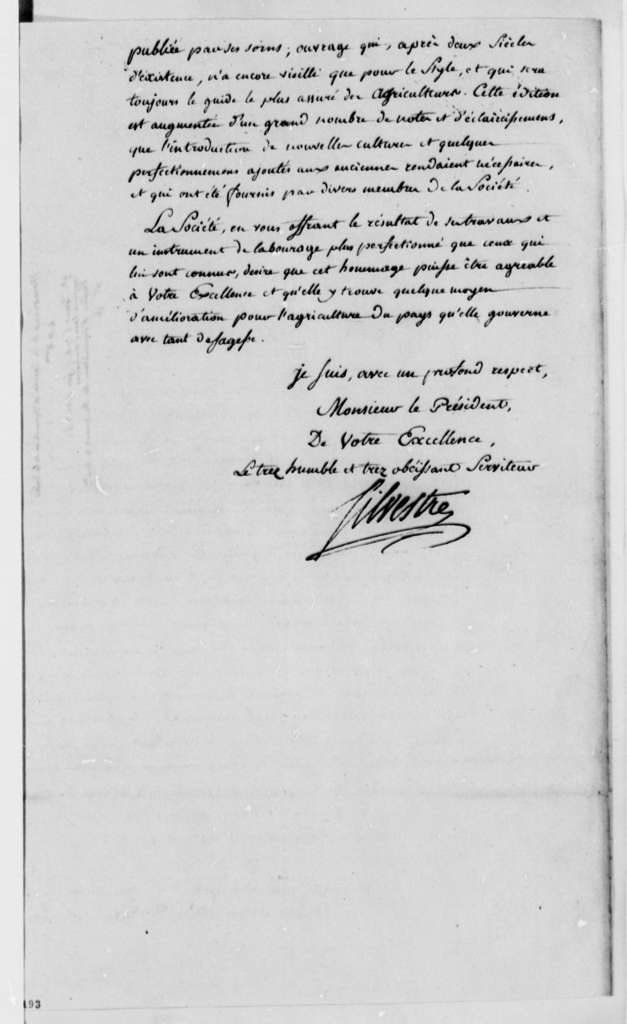 publiée par ses soins; ouvrage qui, après deux Siècles
d'existence, n'a encore vieilli que pour le Style, et qui sera
toujours le guide le plus assuré des Agriculteurs. Cette édition
est augmentée d'un grand nombre de notes et d'éclaircissemens,
que l'introduction de nouvelles cultures et quelques
perfectionnemens ajoutés aux anciennes rendaient nécessaires,
et qui ont été fournis par divers membres de la Société.
La Société, en vous offrant le résultat de ses travaux et
un instrument de labourage plus perfectionné que ceux qui
lui sont connus, desire que cet hommage puisse être agréable
à Votre Excellence et qu'elle y trouve quelque moyen
d'amélioration pour l'agriculture du pays qu'elle gouverne
avec tant de sagesse.
je suis, avec un profond respect,
Monsieur le Président,
De Votre Excellence,
Le trez humble et trez obéissant Serviteur
Silvestre
193